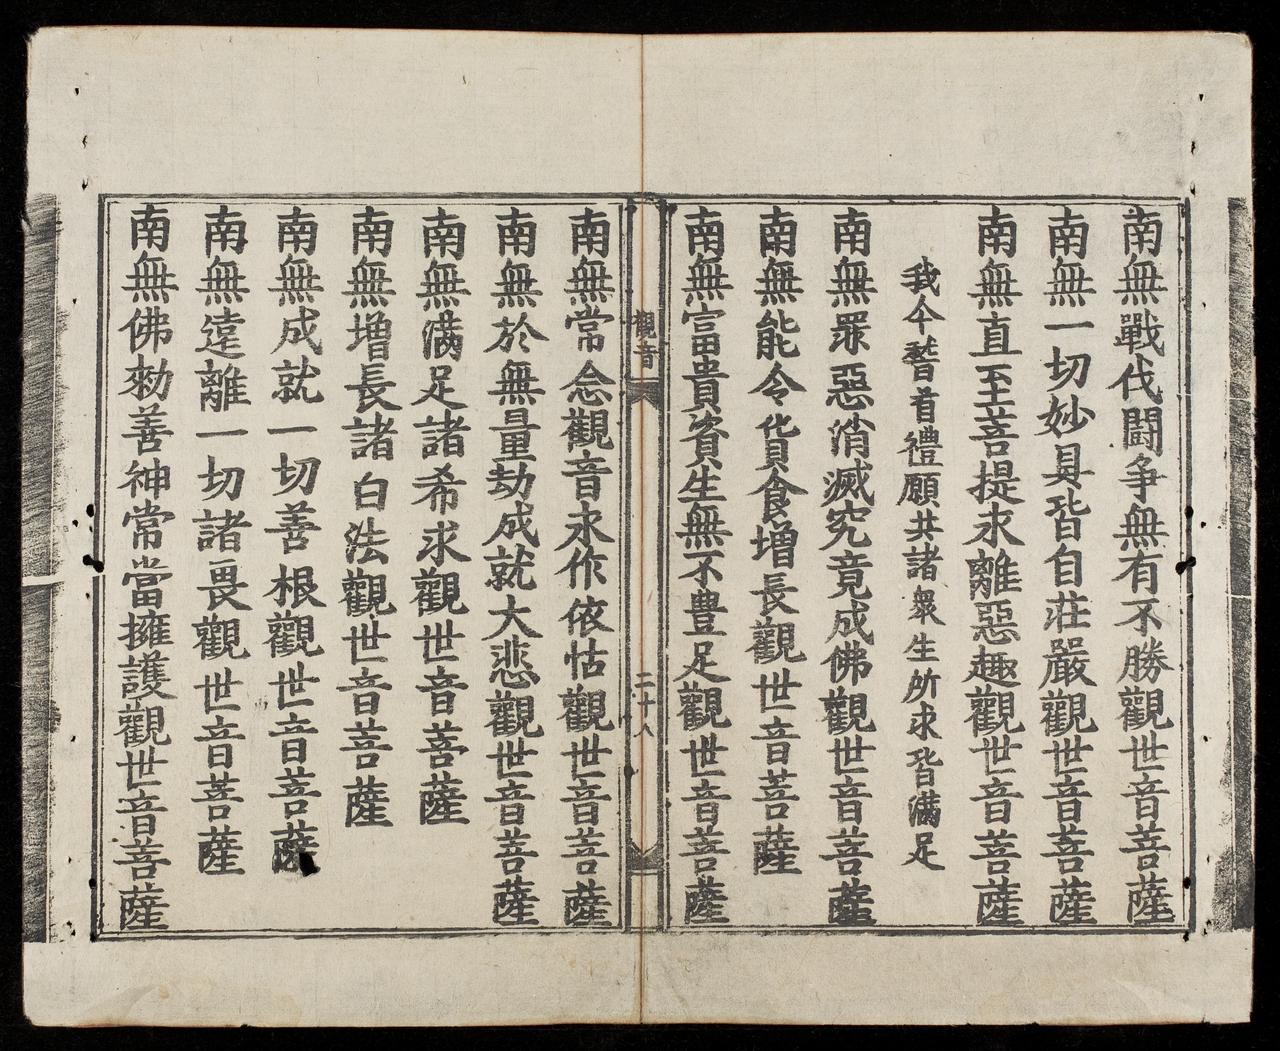 南無戰伐闘爭無有不勝觀世音菩薩
南無一切妙具皆自莊嚴觀世音菩薩
南無直至菩提求離惡趣觀世音菩薩
我今誓首禮願共諸衆生所求皆滿足
南無罪惡消滅究竟成佛觀世音菩薩
南無能令貨食增長觀世音菩薩
南無富貴資生無不豊足觀世音菩薩
觀音
二十八
南無常念觀音永作依怙觀世音菩薩
南無於無量劫成就大悲觀世音菩薩
南無滿足諸希求觀世音菩薩
南無增長諸白法觀世音菩薩
南無成就一切善根觀世音菩薩
南無遠離一切諸畏觀世音菩薩
南無佛勑善神常當擁護觀世音菩薩